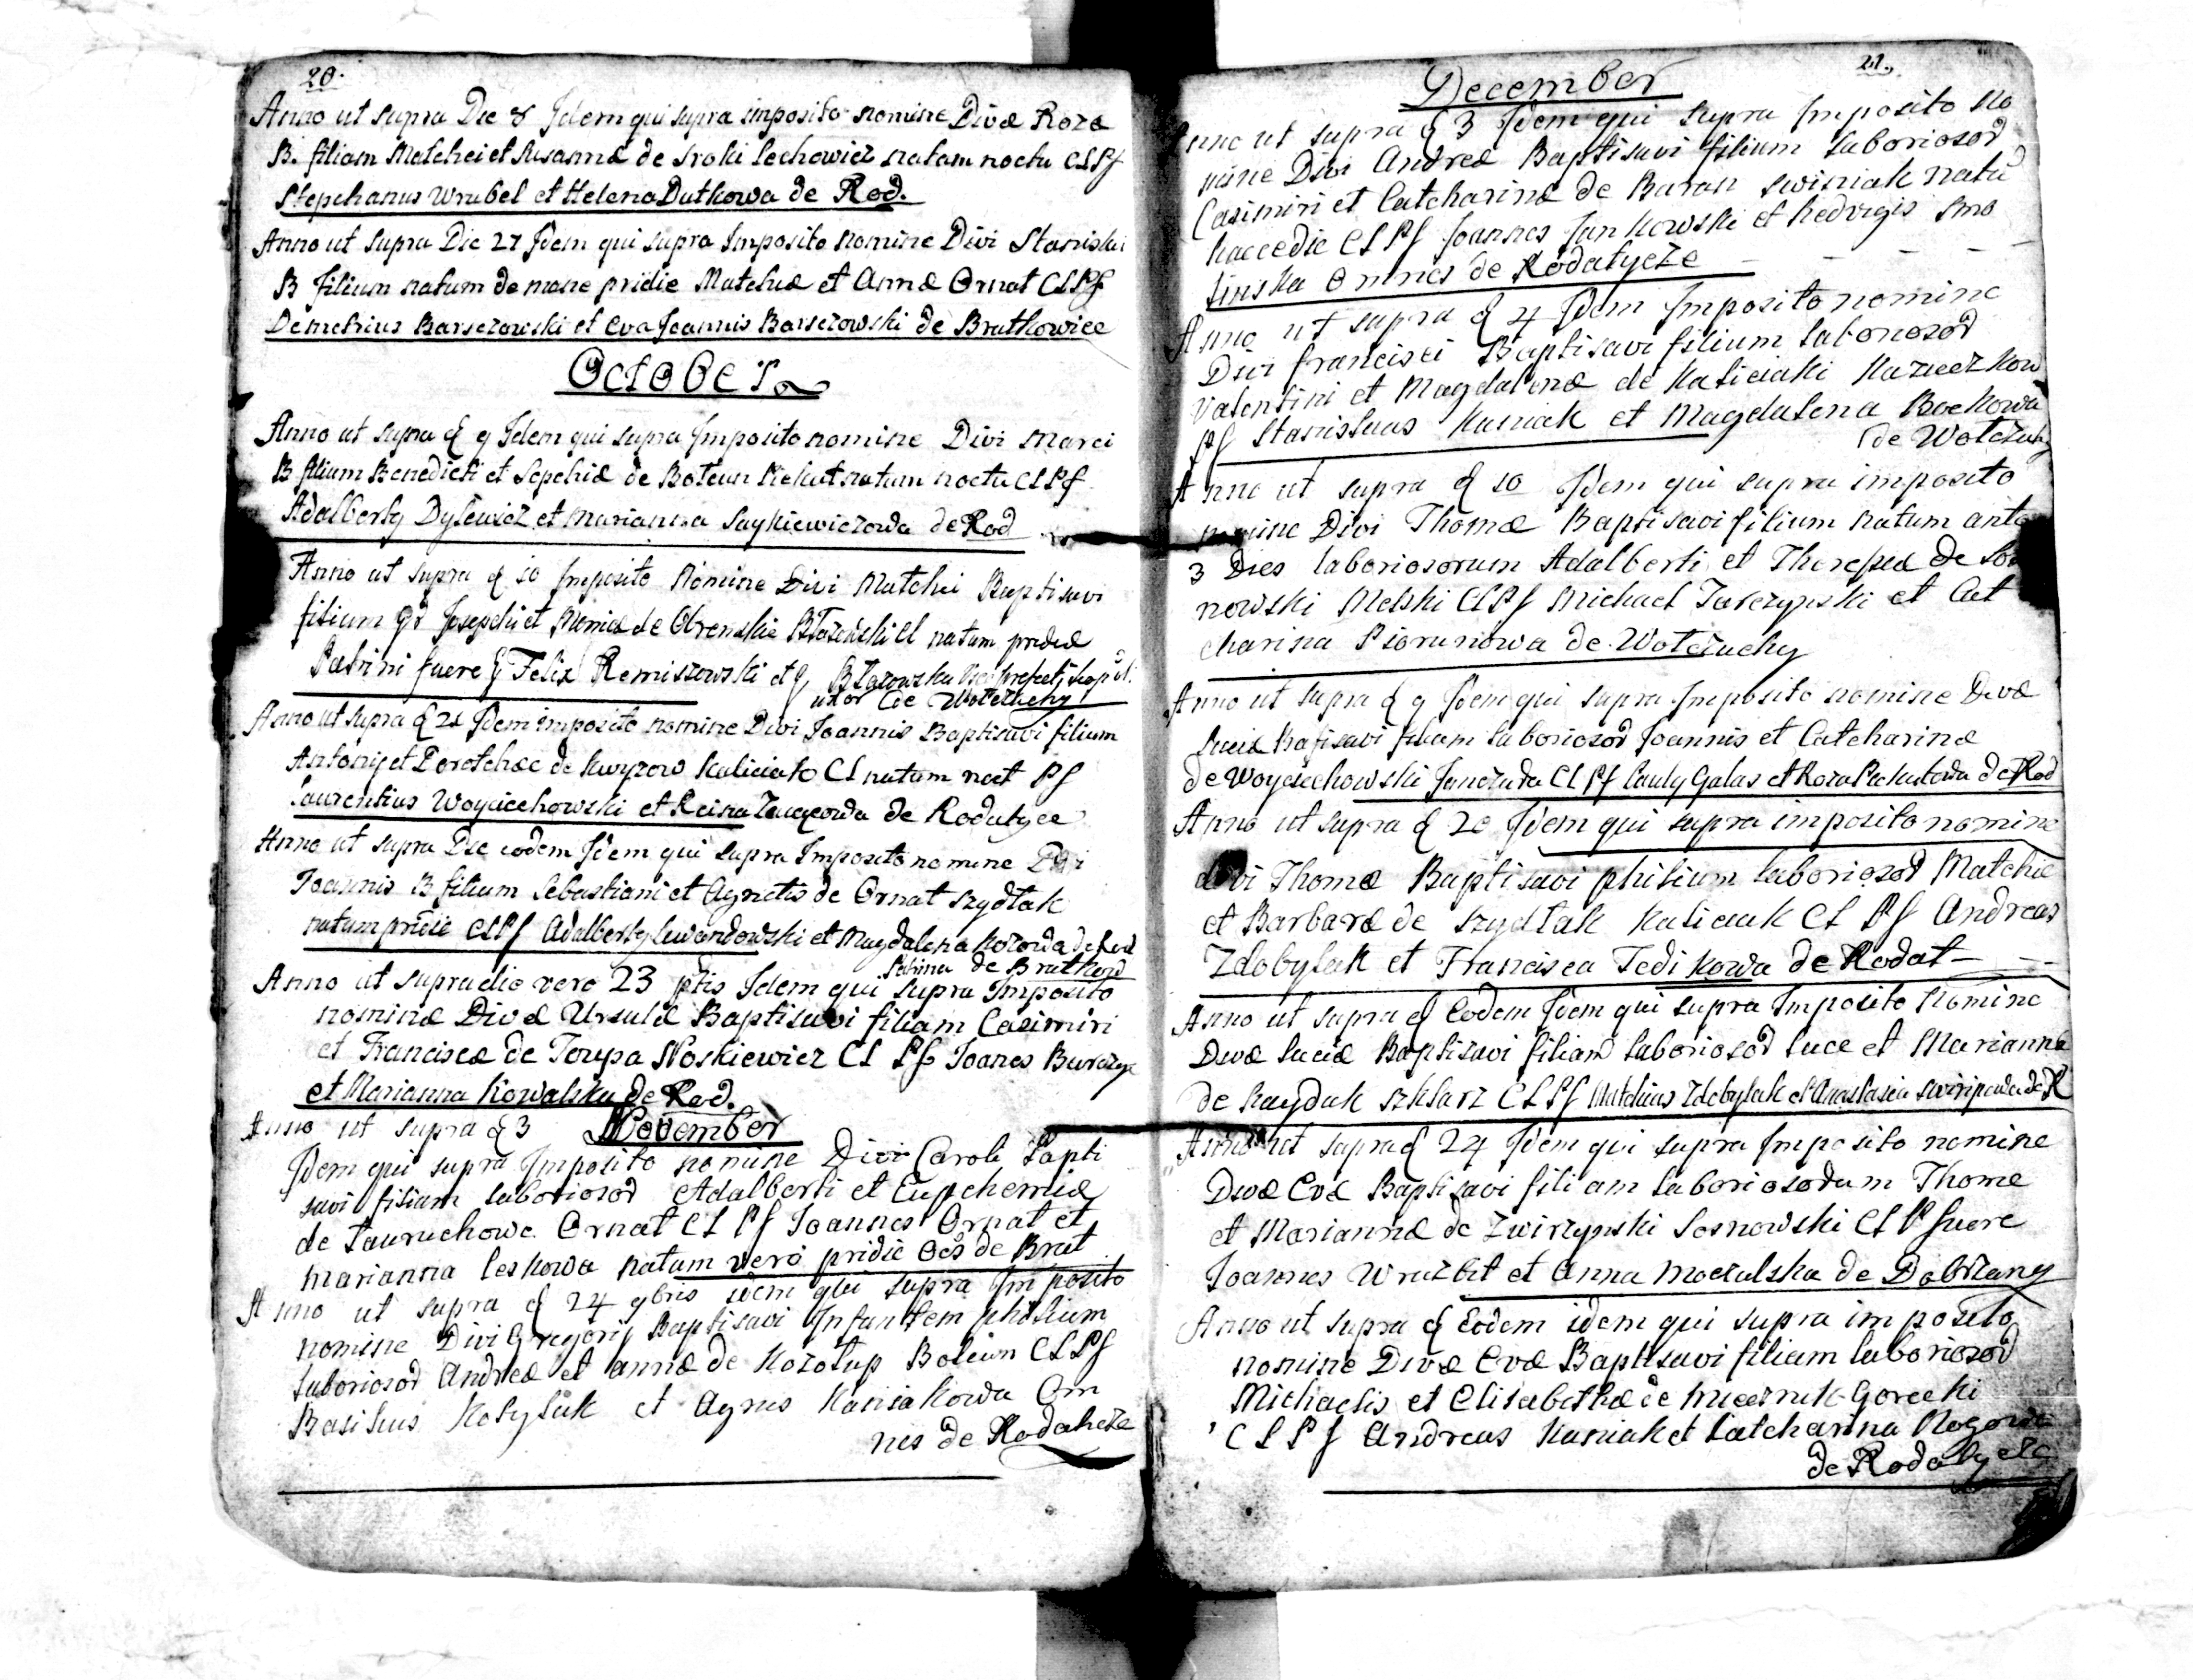 20.
Anno ut supra Die 8 Idem qui supra imposito nomine Divæ Rozæ
B. filiam Matchei et Susannæ de Sroki Lechowicz natam noctu CLPf
Stepchanus Wrubel et Helena Dutkowa de Rod.
Anno ut supra Die 27 Idem qui supra Imposito nomine Divi Stanislai
B filium natum de mane pridie Matchiæ et Annæ Ornat CLPf
Demetrius Barsczowski et Eva Joannis Barsczowski de Bratkowice
October
Anno ut supra d 9 Idem qui supra Imposito nomine Divi Marci
B filium Benedicti et Sopchiæ de Boteun natum noctu CLPf
Adalberty Dylewicz et Marianna Saykiewiczowa de Rod
Anno ut supra d 10 Imposito Nomine Divi Matchei Baptisavi
filium Josepchi et de natum pridie
Patrini fuere Felix Remiszowski et
uxor de
Anno ut supra d 21 Idem imposito nomine Divi Joannis Baptisavi filium
Antonij et Dorotcheæ de Kuyzow Kaliciak CL natum noct Pf
Laurentius Woyciechowski et de Rodatyce
Anno ut supra Die eodem Idem qui supra Imposito nomine Divi
Joannis B filium Sebastiani et Agnetis de Ornat Szydłak
natum pridie CLPf Adalberty Lewandowski et Magdalena Kozowa de Rod
de Bratkow
Anno ut supra die vero 23 ptis Idem qui supra Imposito
nominæ Divæ Ursulæ Baptisavi filiam Casimiri
et Franciscæ de Torupa Noskiewicz CL Pf Joanes
et Marianna Kowalska de Rod.
Anno ut supra d 3 November
Idem qui supra Imposito nomine Divi Caroli Bapti
savi filium laboriosod Adalberti et Eupchemiæ
de Ornat CL Pf Joannes Ornat et
Marianna Leskowa natum vero pridie de Brat
Anno ut supra d 24 9bris idem qui supra Imposito
nomine Divi Gregorij Baptisavi Infantem philium
laboriosod Andreæ et Annæ de Kozołup CLPf
Basilius Kotylak et Agnes Kaniakowa Om
nes de Rodatcze
21.
December
Anno ut supra d 3 Idem qui supra Imposito no
mine Divi Andreæ Baptisavi filium laboriosod
Casimiri et Catcharinæ de Baran Swisniak natu
haccedie CLPf Joannes Jankowski et Hedvigis Smo
linska Omnes de Rodatycze
Anno ut supra d 4 Idem Imposito nomine
Divi Francisci Baptisavi filium laboriosod
Valentini et Magdalenæ de Kaliciaki
Pf Stanislaus Kaniak et Magdalena Bockowa
de Wołczuhy
Anno ut supra d 10 Idem qui supra imposito
nomine Divi Thomæ Baptisavi filium natum ante
3 Dies laboriosorum Adalberti et Theresiæ de Sos
nowski Melski CLPf Michael Tarczynski et Cat
charina Piorunowa de Wołczuchy
Anno ut supra d 9 Idem qui supra Imposito nomine Divæ
Luciæ Batisavi filiam laboriosod Joannis et Catcharinæ
de Woyciechowski CLPf Pauly Galas et Roza de Rod
Anno ut supra d 20 Idem qui supra imposito nomine
divi Thomæ Baptisavi philium laboriosod Matchie
et Barbaræ de Szydłak Kaliciak CL Pf Andreas
Zdobylak et Francisca Tedikowa de Rodat
Anno ut supra d Eodem Idem qui supra Imposito Nomine
Divæ Luciæ Baptisavi filiam laboriosod Luce et Mariannæ
de Hayduk Szklarz CLPf Matchias Zdobylak et Anastasia de R
Anno ut supra d 24 Idem qui supra Imposito nomine
Divæ Evæ Baptisavi filiam laboriosodum Thome
et Mariannæ de Zwirzynski Sosnowski CL Pf fuere
Joannes Wrazbit et Anna Moczulska de Dobrzany
Anno ut supra d Eodem idem qui supra imposito
nomine Divæ Evæ Baptisavi filiam laboriosod
Michaelis et Elisabethæ de Gorecki
CLPf Andreas Kaniak et Catcharina
de Rodatycze